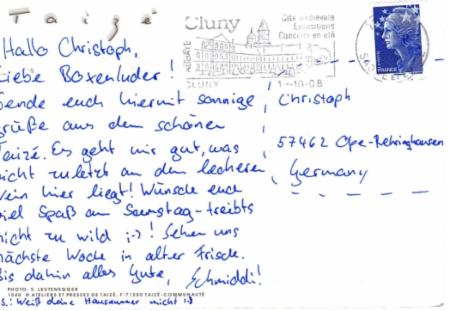 Taizé
Hallo Christoph,
Liebe Boxenluder!
Sende euch hiermit sonnige
Grüße aus dem schönen
Taizé. Es geht mir gut, was
nicht zuletzt an dem leckeren
Wein hier liegt! Wünsche euch
viel Spaß am Samstag - treibts
nicht zu wild ;-)! Sehen uns
nächste Woche in alter Frische.
Bis dahin alles Gute, Schmiddi!
PHOTO: S. LEUTENEGGER
© ATELIERS ET PRESSES DE TAIZÉ, F-71250 TAIZÉ-COMMUNAUTÉ
P.S.: Weiß deine Hausnummer nicht :-)
Cluny
Cité médiévale
Expositions
Concerts en été
ABBAYE
CLUNY
1-10-08
FRANCE
Christoph
57462 Olpe-Rehringhausen
Germany